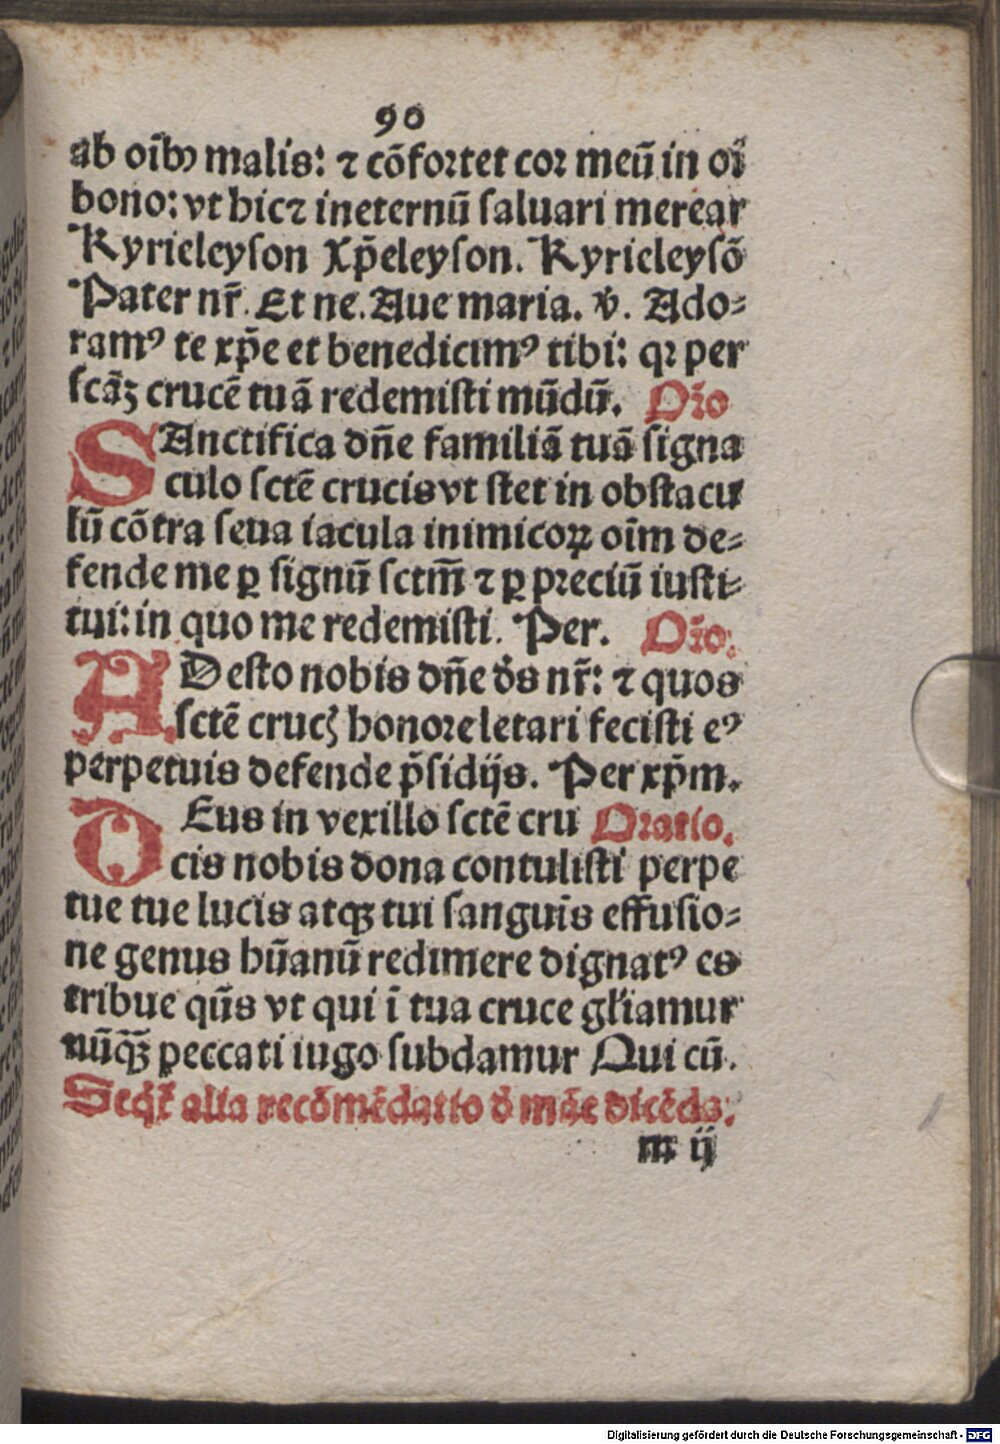 90
ab oīb⁹ malis: ⁊ cōfortet cor meū in oī
bono: vt hic⁊ ineternū ſaluari merear
Kyrieleyſon Xp̄eleyſon. Kyrieleyſō
Pater nr̄. Et ne. Aue maria. v̄. Ado⸗
ram⁹ te xp̄e et benedicim⁹ tibi: qꝛ per
ſcāꝫ crucē tuā redemiſti mūdū. Oꝛ̄o
SAnctifica dn̄e familiā tuā ſigna
culo ſctē crucis vt ſtet in obſtacu
lū cōtra ſeua iacula inimicoꝝ oīm de⸗
fende me ꝑ ſignū ſctm̄ ⁊ ꝑ preciū iuſti⸗
tui: in quo me redemiſti. Per. Oꝛ̄o:
ADeſto nobis dn̄e ds̄ nr̄: ⁊ quos
ſctē crucꝭ honoꝛe letari feciſti e⁹
perpetuis defende p̄ſidijs. Per xp̄m.
DEus in vexillo ſctē cru Oꝛatio.
cis nobis dona contuliſti perpe
tue tue lucis atqꝫ tui ſanguīs effuſio⸗
ne genus hūanū redimere dignat⁹ es
tribue qūs vt qui ī tua cruce gl̄iamur
nūqꝫ̄ peccati iugo ſubdamur Qui cū.
Seqr̄ alia recōmēdatio d̄ māe dicēda.
m ij
Digitalisierung gefördert durch die Deutsche Forschungsgemeinschaft - DFG